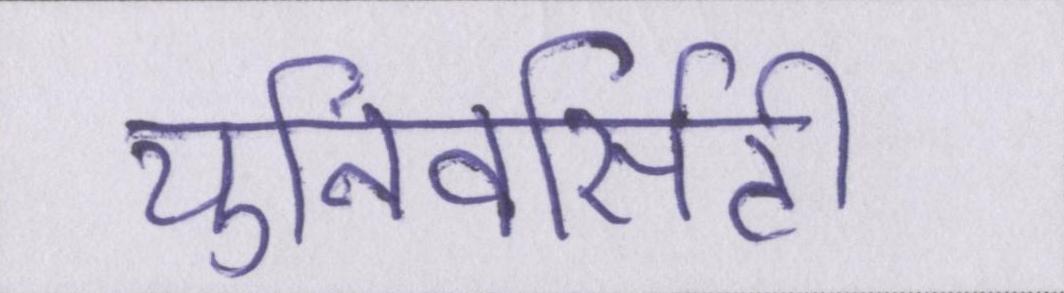 युनिवर्सिटी